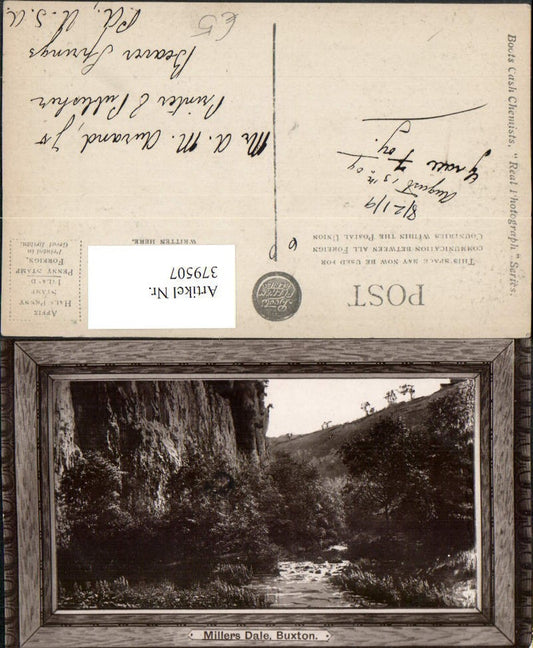 Boots Cash Chemists, "Real Photograph" Series.
POST
THIS SPACE MAY NOW BE USED FOR
COMMUNICATION BETWEEN ALL FOREIGN
COUNTRIES WITHIN THE POSTAL UNION
WRITTEN HERE.
AFFIX
HALF-PENNY
STAMP
INLAND
PENNY STAMP
FOREIGN.
Printed in
Great Britain.
August 13th 09
Mr. A. M. Aurand, Jr
Printer & Publisher
Beaver Springs
Pa., U. S. A.
Artikel Nr.
379507
Millers Dale, Buxton.